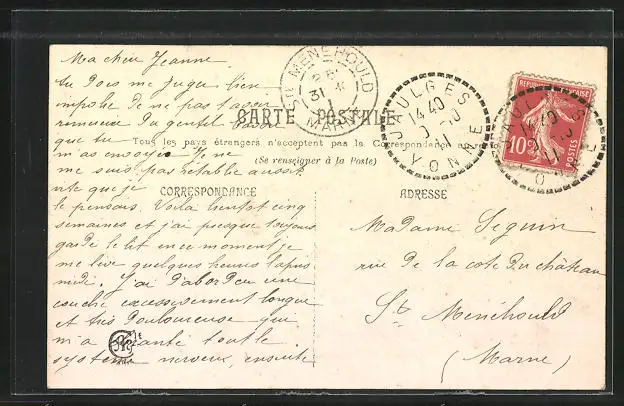 Ma chère Jeanne
tu dois me juger bien
impolie de ne pas t'avoir
remerciée du gentil
que tu
m'as envoyé. Je ne
me suis pas rétablie aussit
vite que je
le pensais. Voilà bientôt cinq
semaines et j'ai presque toujours
gardé le lit en ce moment je
me lève quelques heures l'après
midi. J'ai d'abord eu une
couche excessivement longue
et très douloureuse qui
m'a tout le
système nerveux, ensuite
CARTE POSTALE
Tous les pays étrangers n'acceptent pas la Correspondance au
(Se renseigner à la Poste)
CORRESPONDANCE
ADRESSE
Madame Seguin
rue de la cote du château
Ste Ménéhould
(Marne)
STE MENEHOULD
31
MARNE
JAULGES
14 40
11
YONNE
REPUBLIQUE FRANÇAISE
10c
POSTES
JAULGES
14 40
11
YONNE